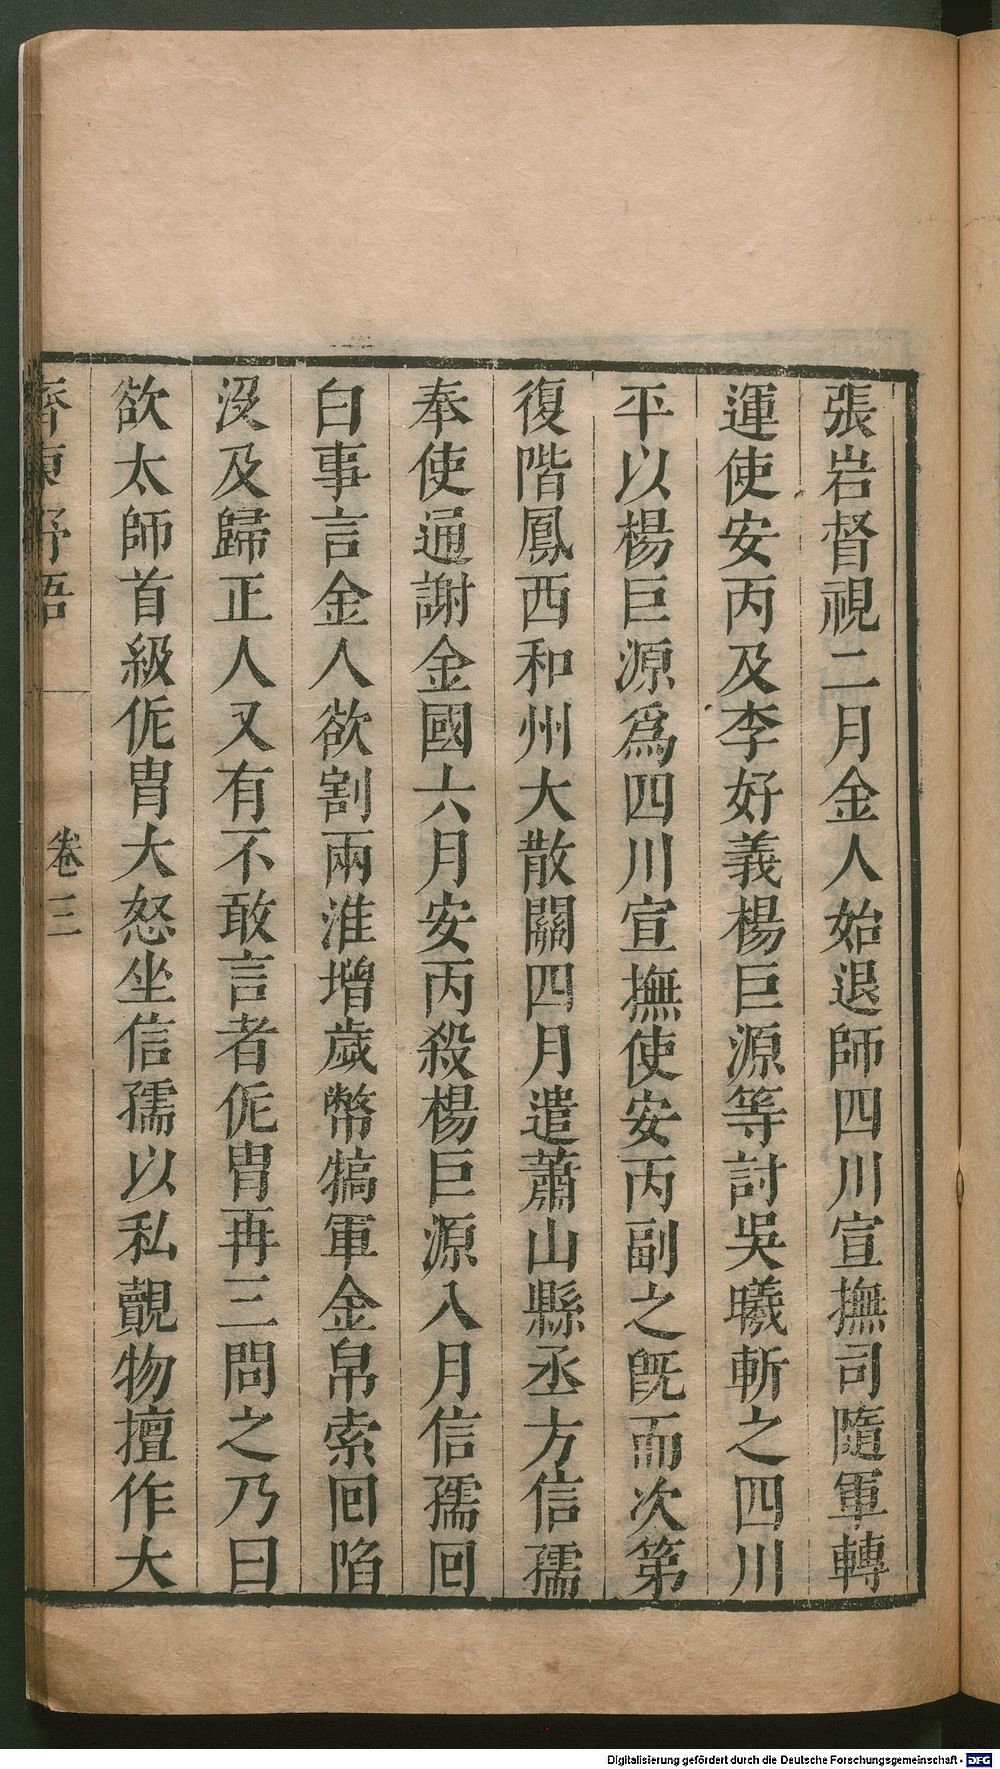 張岩督視二月金人始退師四川宣撫司隨軍轉
運使安丙及李好義楊巨源等討吳曦斬之四川
平以楊巨源爲四川宣撫使安丙副之旣而次第
復階鳳西和州大散關四月遣蕭山縣丞方信孺
奉使通謝金國六月安丙殺楊巨源入月信孺回
白事言金人欲割兩淮增歲幣犒軍金帛索回陷
沒及歸正人又有不敢言者侂胄再三問之乃曰
欲太師首級侂胄大怒坐信孺以私覿物擅作大
齊東野語 卷三
Digitalisierung gefördert durch die Deutsche Forschungsgemeinschaft - DFG